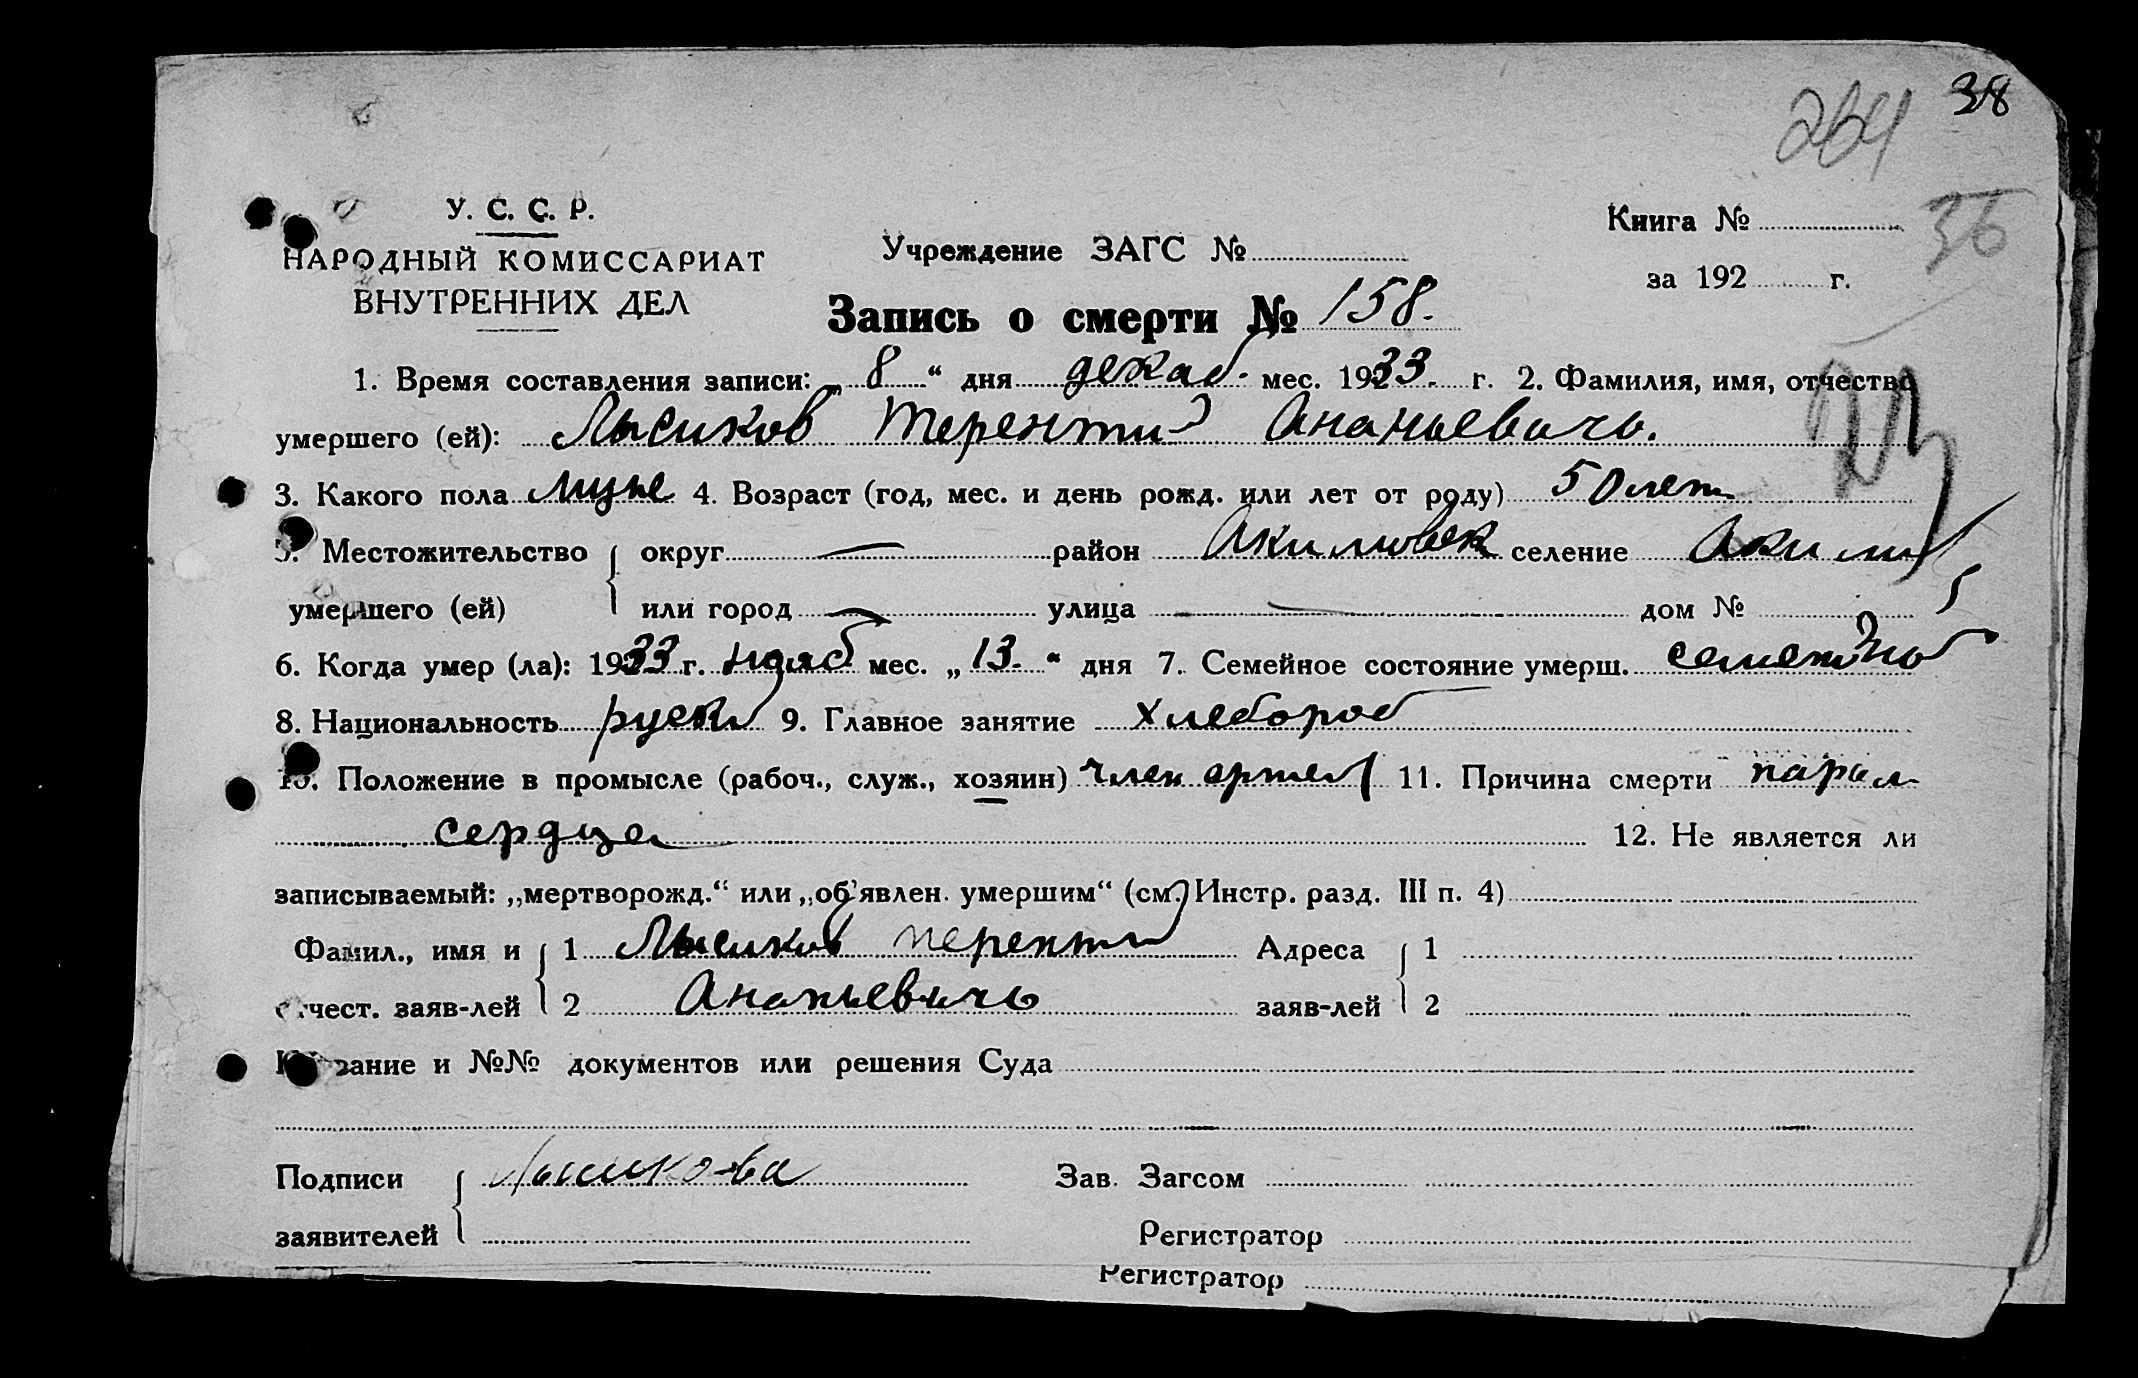 38
264
36
У. С. С. Р.
НАРОДНЫЙ КОМИССАРИАТ
ВНУТРЕННИХ ДЕЛ
Учреждение ЗАГС №
Книга №
за 192 г.
Запись о смерти № 158.
1. Время составления записи: „ 8 “ дня декаб. мес. 1933. г. 2. Фамилия, имя, отчество
умершего (ей): Лысиков Терентий Ананьевичь.
3. Какого пола муже 4. Возраст (год, мес. и день рожд. или лет от роду) 50 лет
5. Местожительство округ — район Акимовск селение Аким
умершего (ей) или город — улица — дом №
6. Когда умер (ла): 1933 г. нояб мес. „ 13. “ дня 7. Семейное состояние умерш. семейной
8. Национальность руский 9. Главное занятие хлебороб
10. Положение в промысле (рабоч., служ., хозяин) член артел 11. Причина смерти парал
сердца 12. Не является ли
записываемый: „мертворожд.“ или „об'явлен. умершим“ (см. Инстр. разд. III п. 4)
Фамил., имя и 1 Лысиков терентий Адреса 1
отчест. заяв-лей 2 Ананьевичь заяв-лей 2
Название и №№ документов или решения Суда
Подписи Лысикова Зав. Загсом
заявителей Регистратор
Регистратор